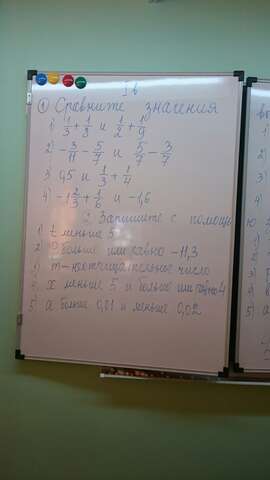 I в
① Сравните значения
1) 1/3 + 1/3 и 1/2 + 1/9
2) -3/11 - 5/7 и 5/7 - 3/7
3) 0,5 и 1/3 + 1/4
4) -1 2/3 + 1/6 и -1,6
2. Запишите с помощь
1) t меньше 5
2) р больше или равно -11,3
3) m - неотрицательное число
4) х меньше 5 и больше или равно 4
5) а больше 0,01 и меньше 0,02